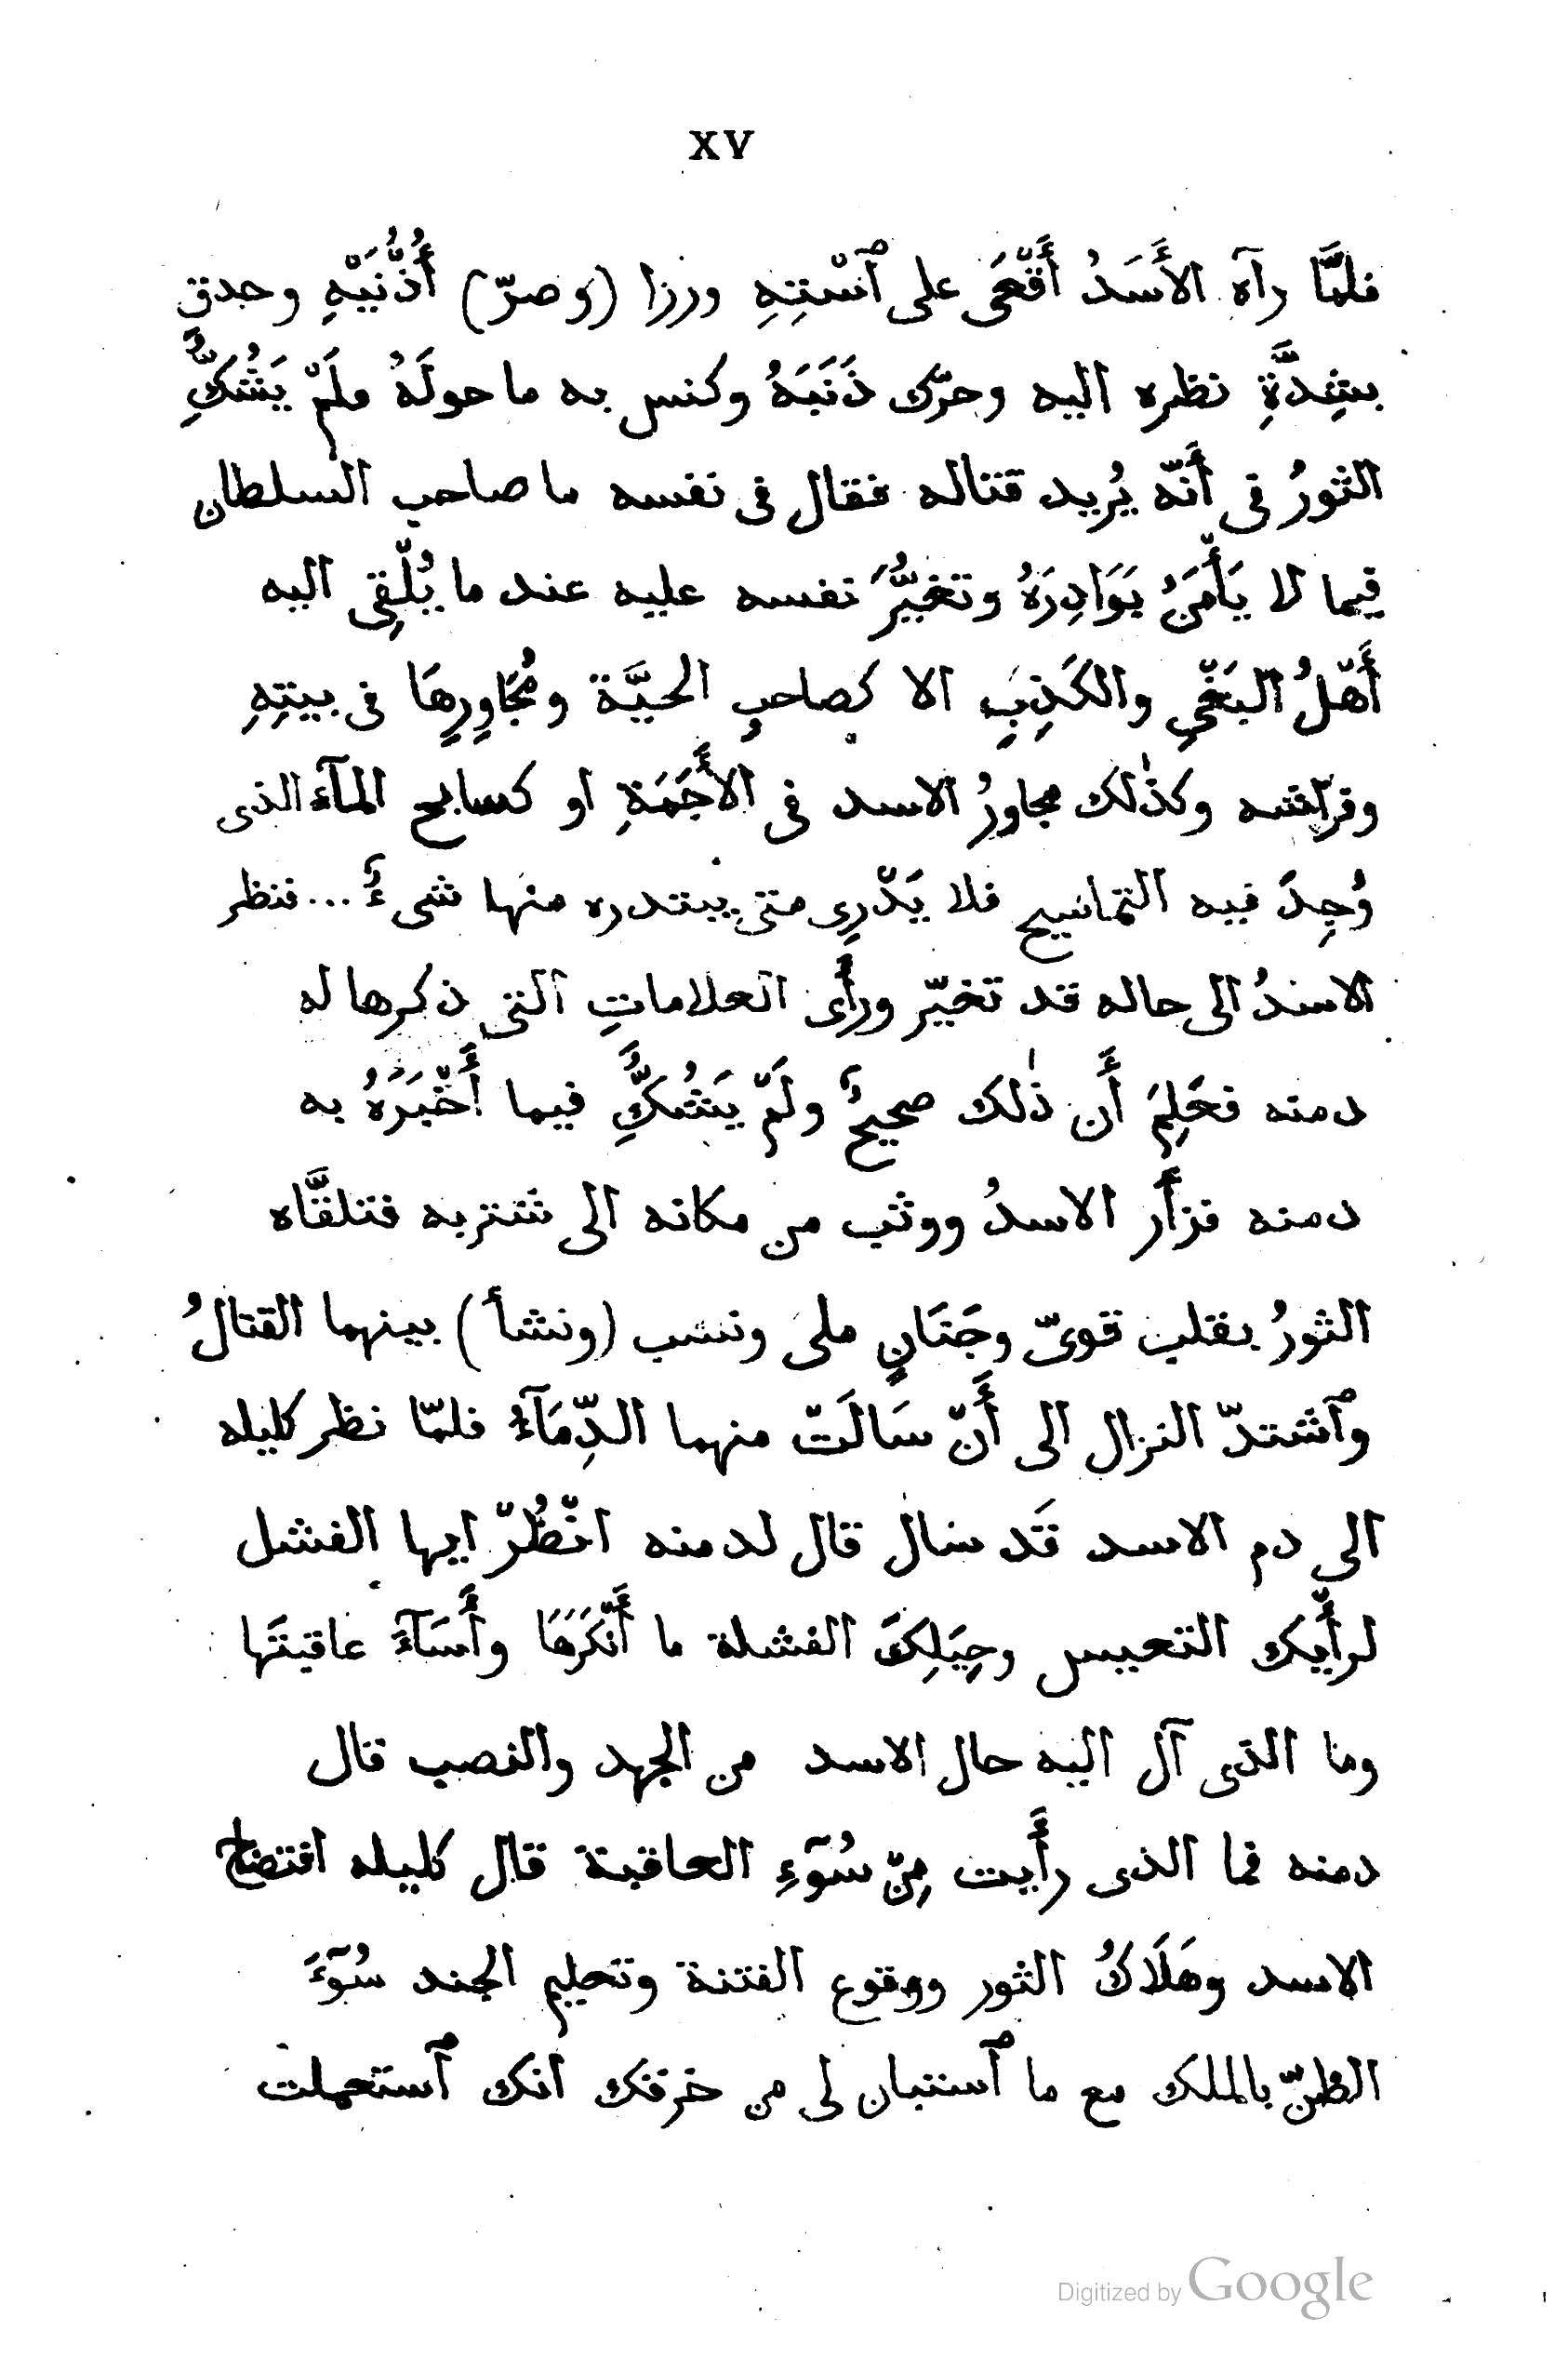 XV
فلمَّا رآه الأَسَدُ أَقْعَى على ٱسْتِهِ ورزا (وصرّ) أُذُنَيْهِ وحدق
بشِدَّةِ نظره اليه وحرّك ذَنَبَهُ وكنس به ما حولَهُ ولَمْ يَشُكَّ
الثورُ فى أَنّه يُريد قتاله فقال فى نفسه ما صاحب السلطان
فيما لا يَأْمَنُ بَوَادِرَهُ وتغيُّرَ نفسه عليه عند ما يُلْقِى اليه
أَهْلُ البَغْىِ والكَذِبِ الا كصاحبِ الحيَّة ومُجَاوِرِهَا فى بيتِهِ
وفراشه وكذٰلك مجاورُ الاسد فى الأَجَمَةِ او كسابح المآءَ الذى
وُجِدَ فيه التماسيح فلا يَدْرِى متى يبتدره منها شىءٌ ... فنظر
الاسدُ الى حاله قد تغيّر ورأى العلاماتِ التى ذكرها له
دمنه فعَلِمَ أَن ذٰلك صحيحٌ ولَمْ يَشُكَّ فيما أَخْبَرَهُ به
دمنه فزأَر الاسدُ ووثب من مكانه الى شتربه فتلقَّاه
الثورُ بقلب قوىّ وجَنَانٍ ملىَ ونشب (ونشأ) بينهما القتالُ
وٱشتدّ النزال الى أَنْ سَالَتْ منهما الدِّمَآءُ فلمّا نظر كليله
الى دم الاسد قَد سال قال لدمنه انْظُرْ ايها الفشل
لرأْيك التعيس وحِيَلِكَ الفشلة ما أَنْكَرَهَا وأَسَآءَ عاقبتَها
وما الذى آل اليه حال الاسد من الجهد والنصب قال
دمنه فما الذى رأَيت مِنْ سُوٓءِ العاقبة قال كليله افتضاح
الاسد وهَلَاكُ الثور ووقوع الفتنة وتعليم الجند سُوٓءَ
الظنّ بالملك مع ما ٱستبان لى من خرقك انك ٱستعملت
Digitized by Google